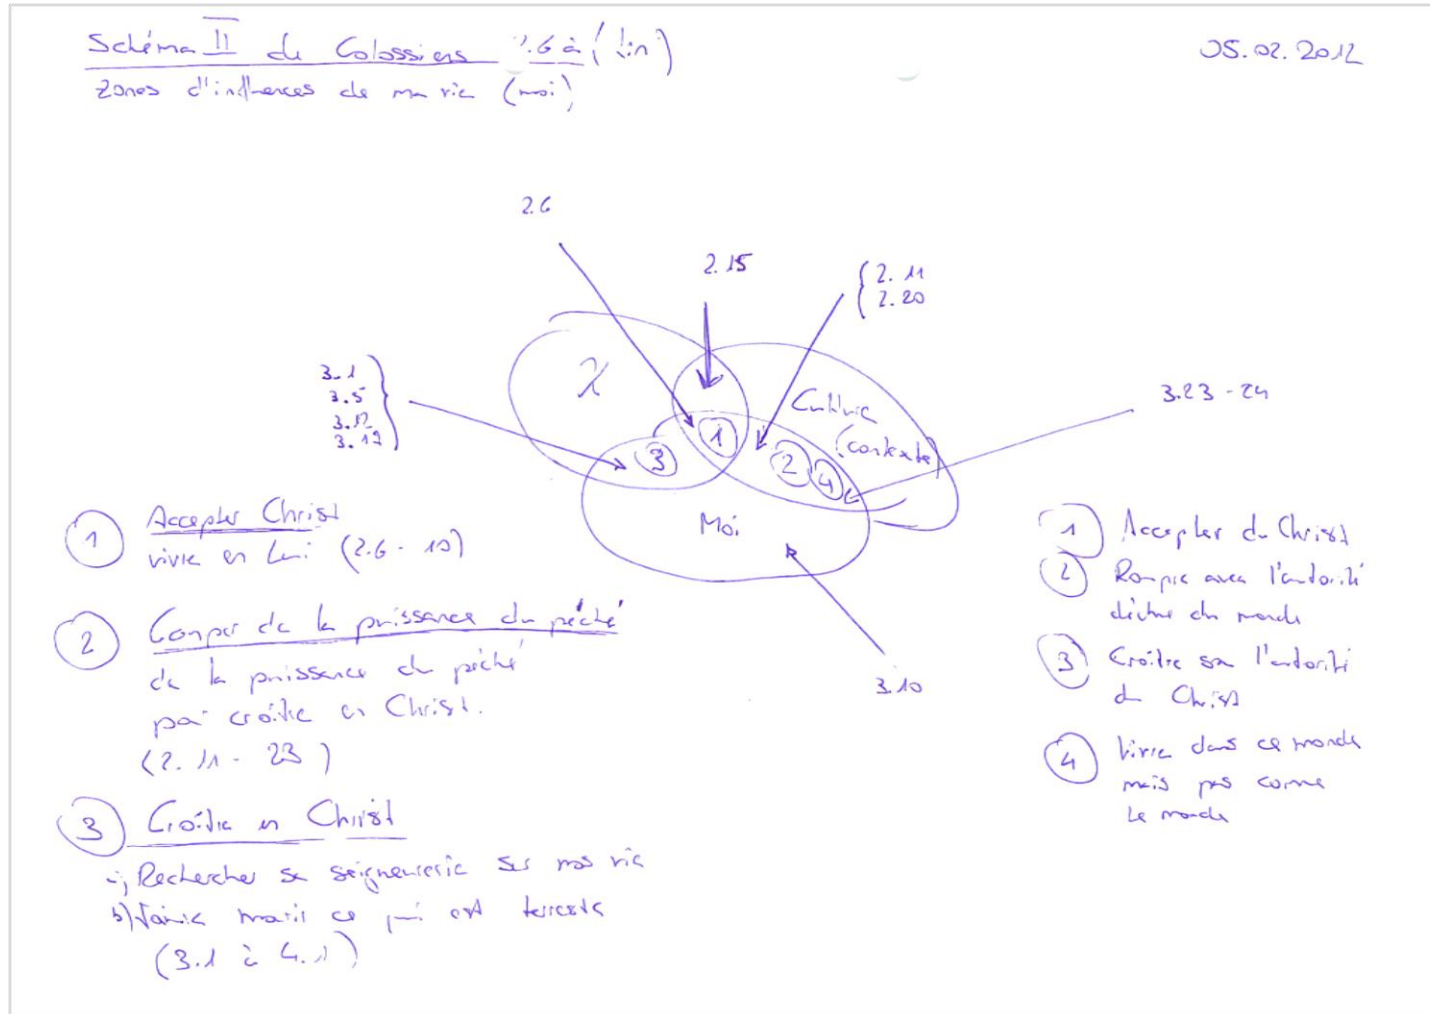 Schéma II de Colossiens 2.6 à (fin)
05.02.2012
Zones d'influences de ma vie (moi)
2.6
2.15
2.11
2.20
3.1
3.5
3.12
χ
Culture
(contexte)
3.23-24
1
3
2
4
Moi
3.10
1 Accepter Christ
vivre en Lui (2.6-10)
2 Couper de la puissance du péché
de la puissance du péché
pour croître en Christ.
(2.11-23)
3 Croître en Christ
a) Rechercher sa seigneurerie sur nos vie
b) Faire mourir ce qui est terrestre
(3.1 à 4.1)
1 Accepter du Christ
2 Rompre avec l'autorité
déchue du monde
3 Croître l'autorité
du Christ
4 Vivre dans ce monde
mais pas comme
le monde